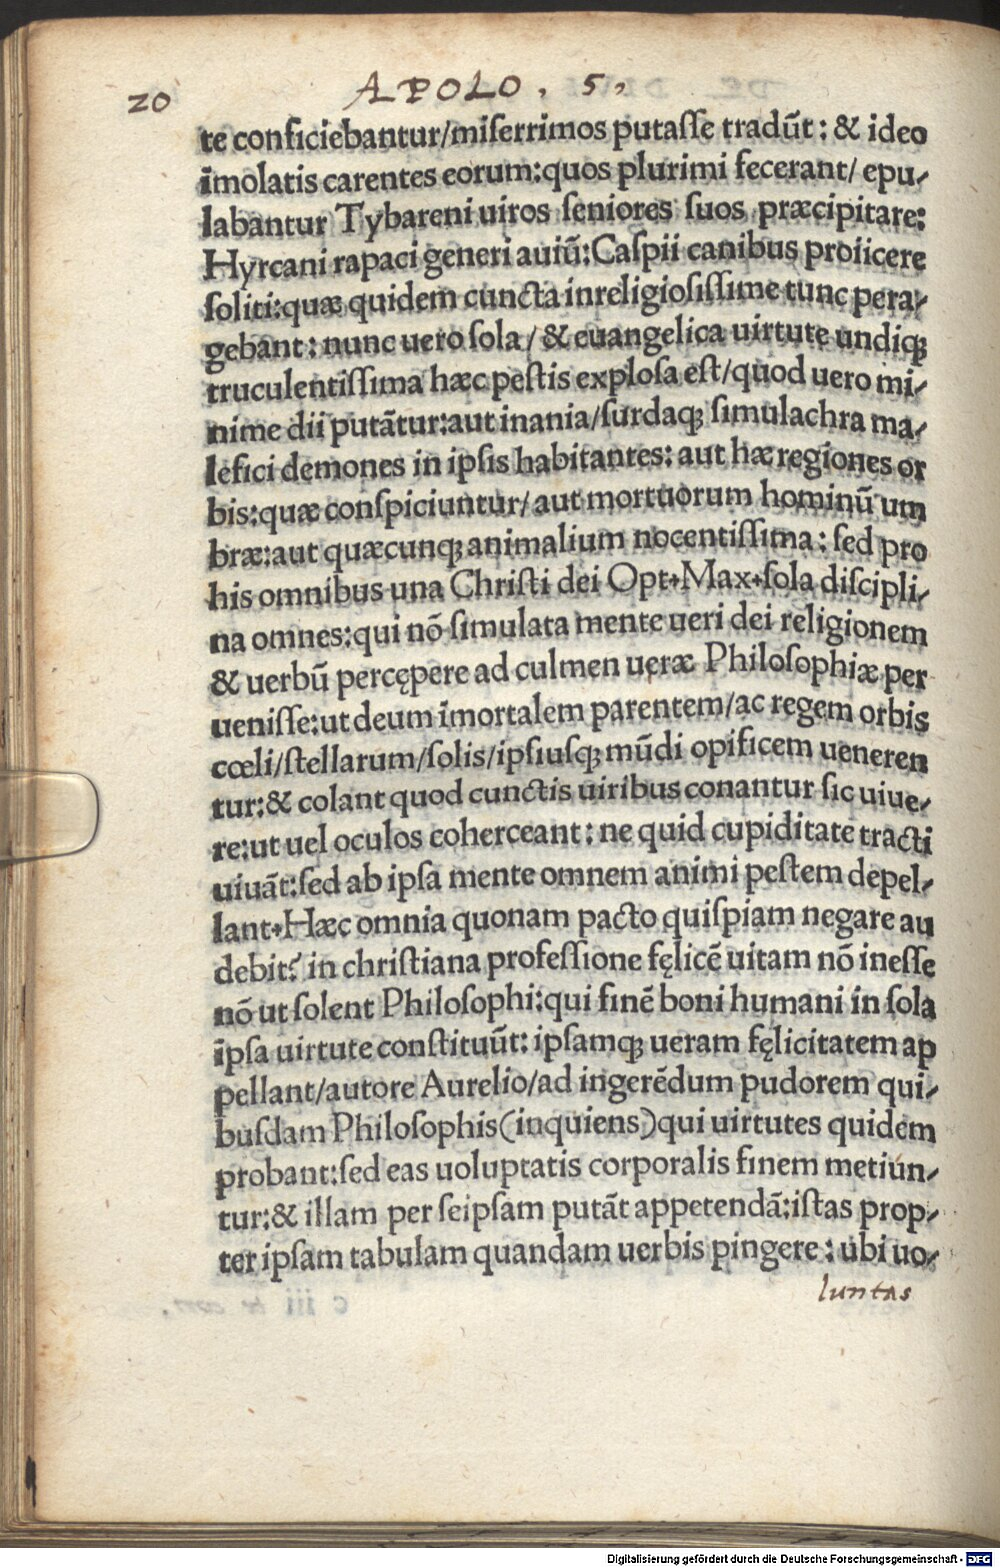 20 APOLO. 5.
te conficiebantur/miserrimos putasse tradũt: & ideo
ĩmolatis carentes eorum:quos plurimi fecerant/ epu-
labantur Tybareni uiros seniores suos præcipitare:
Hyrcani rapaci generi auiũ:Caspii canibus proiicere
soliti:quæ quidem cuncta inreligiosissime tunc pera-
gebant: nunc uero sola/ & euangelica uirtute undiqꝫ
truculentissima hæc pestis explosa est/quod uero mi-
nime dii putãtur:aut inania/surdaqꝫ simulachra ma-
lefici demones in ipsis habitantes: aut hæ regiones or
bis:quæ conspiciuntur/ aut mortuorum hominũ um
bræ:aut quæcunqꝫ animalium nocentissima: sed pro
his omnibus una Christi dei Opt.Max.sola discipli-
na omnes:qui nõ simulata mente ueri dei religionem
& uerbũ percępere ad culmen ueræ Philosophiæ per
uenisse:ut deum ĩmortalem parentem/ac regem orbis
cœli/stellarum/solis/ipsiusqꝫ mũdi opificem ueneren
tur:& colant quod cunctis uiribus conantur sic uiue-
re:ut uel oculos coherceant: ne quid cupiditate tracti
uiuãt:sed ab ipsa mente omnem animi pestem depel-
lant.Hæc omnia quonam pacto quispiam negare au
debit? in christiana professione fęlicẽ uitam nõ inesse
nõ ut solent Philosophi:qui finẽ boni humani in sola
ĩpsa uirtute constituũt: ipsamqꝫ ueram fęlicitatem ap
pellant/autore Aurelio/ad ingerẽdum pudorem qui-
busdam Philosophis(inquiens)qui uirtutes quidem
probant:sed eas uoluptatis corporalis finem metiun-
tur:& illam per seipsam putãt appetendã:istas prop-
ter ipsam tabulam quandam uerbis pingere: ubi uo-
luntas
Digitalisierung gefördert durch die Deutsche Forschungsgemeinschaft - DFG